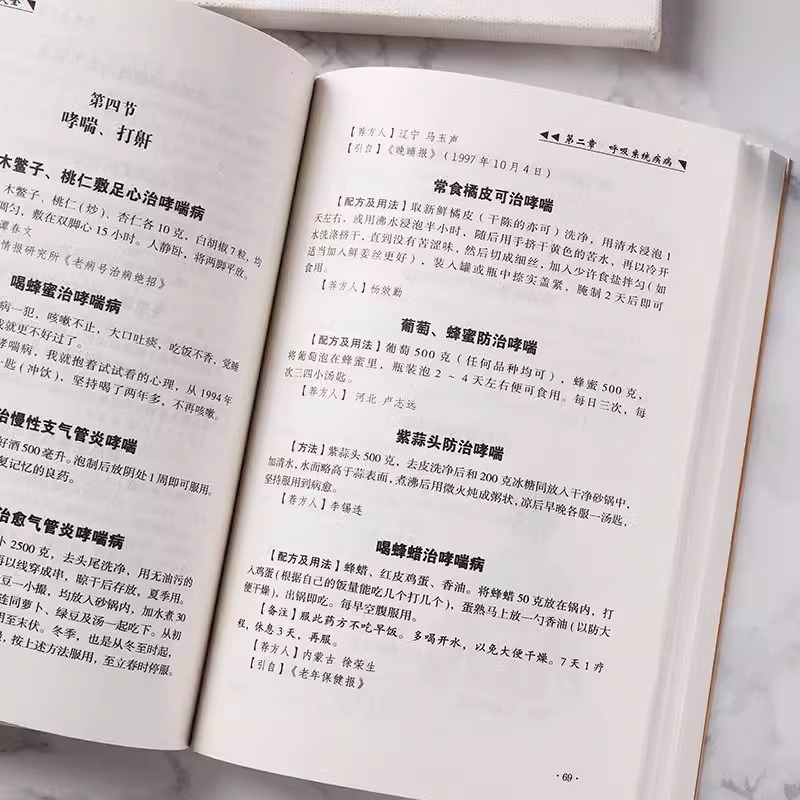 第四节
哮喘、打鼾
木鳖子、桃仁敷足心治哮喘病
木鳖子、桃仁（炒）、杏仁各 10 克，白胡椒 7 粒，均
调匀，敷在双脚心 15 小时。人静卧，将两脚平放。
谭春文
情报研究所《老病号治病绝招》
喝蜂蜜治哮喘病
病一犯，咳嗽不止，大口吐痰，吃饭不香，觉睡
就更不好过了。
哮喘病，我就抱着试试看的心理，从 1994 年
匙（冲饮），坚持喝了两年多，不再咳嗽。
治慢性支气管炎哮喘
好酒 500 毫升。泡制后放阴处 1 周即可服用。
复记忆的良药。
治愈气管炎哮喘病
2500 克，去头尾洗净，用无油污的
再以线穿成串，晾干后存放，夏季用。
豆一小撮，均放入砂锅内，加水煮 30
连同萝卜、绿豆及汤一起吃下。从初
用至末伏。冬季，也是从冬至时起，
，按上述方法服用，至立春时停服。
第二章 呼吸系统疾病
【荐方人】辽宁 马玉声
【引自】《晚晴报》（1997 年 10 月 4 日）
常食橘皮可治哮喘
【配方及用法】取新鲜橘皮（干陈的亦可）洗净，用清水浸泡 1
天左右，或用沸水浸泡半小时，随后用手挤干黄色的苦水，再以冷开
水洗涤挤干，直到没有苦涩味，然后切成细丝，加入少许食盐拌匀（如
适当加入鲜姜丝更好），装入罐或瓶中捺实盖紧，腌制 2 天后即可
食用。
【荐方人】杨效勤
葡萄、蜂蜜防治哮喘
【配方及用法】葡萄 500 克（任何品种均可），蜂蜜 500 克，
将葡萄泡在蜂蜜里，瓶装泡 2 ~ 4 天左右便可食用。每日三次，每
次三四小汤匙。
【荐方人】河北 卢志远
紫蒜头防治哮喘
【方法】紫蒜头 500 克，去皮洗净后和 200 克冰糖同放入干净砂锅中，
加清水，水面略高于蒜表面，煮沸后用微火炖成粥状，凉后早晚各服一汤匙，
坚持服用到病愈。
【荐方人】李锡连
喝蜂蜡治哮喘病
【配方及用法】蜂蜡、红皮鸡蛋、香油。将蜂蜡 50 克放在锅内，打
入鸡蛋（根据自己的饭量能吃几个打几个），蛋熟马上放一勺香油（以防大
便干燥），出锅即吃。每早空腹服用。
【备注】服此药方不吃早饭。多喝开水，以免大便干燥。7 天 1 疗
程，休息 3 天，再服。
【荐方人】内蒙古 徐荣生
【引自】《老年保健报》
·69·